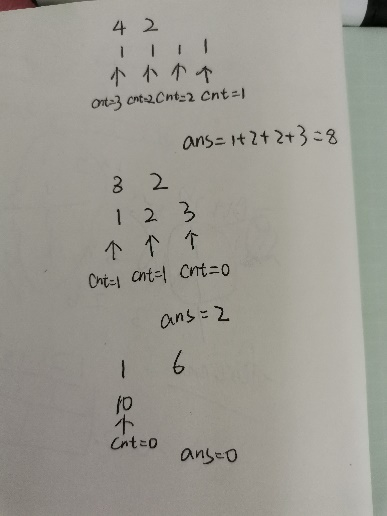 4 2
1 1 1 1
↑ ↑ ↑ ↑
cnt=3 cnt=2 cnt=2 cnt=1
ans=1+2+2+3=8
3 2
1 2 3
↑ ↑ ↑
cnt=1 cnt=1 cnt=0
ans=2
1 6
10
↑
cnt=0
ans=0